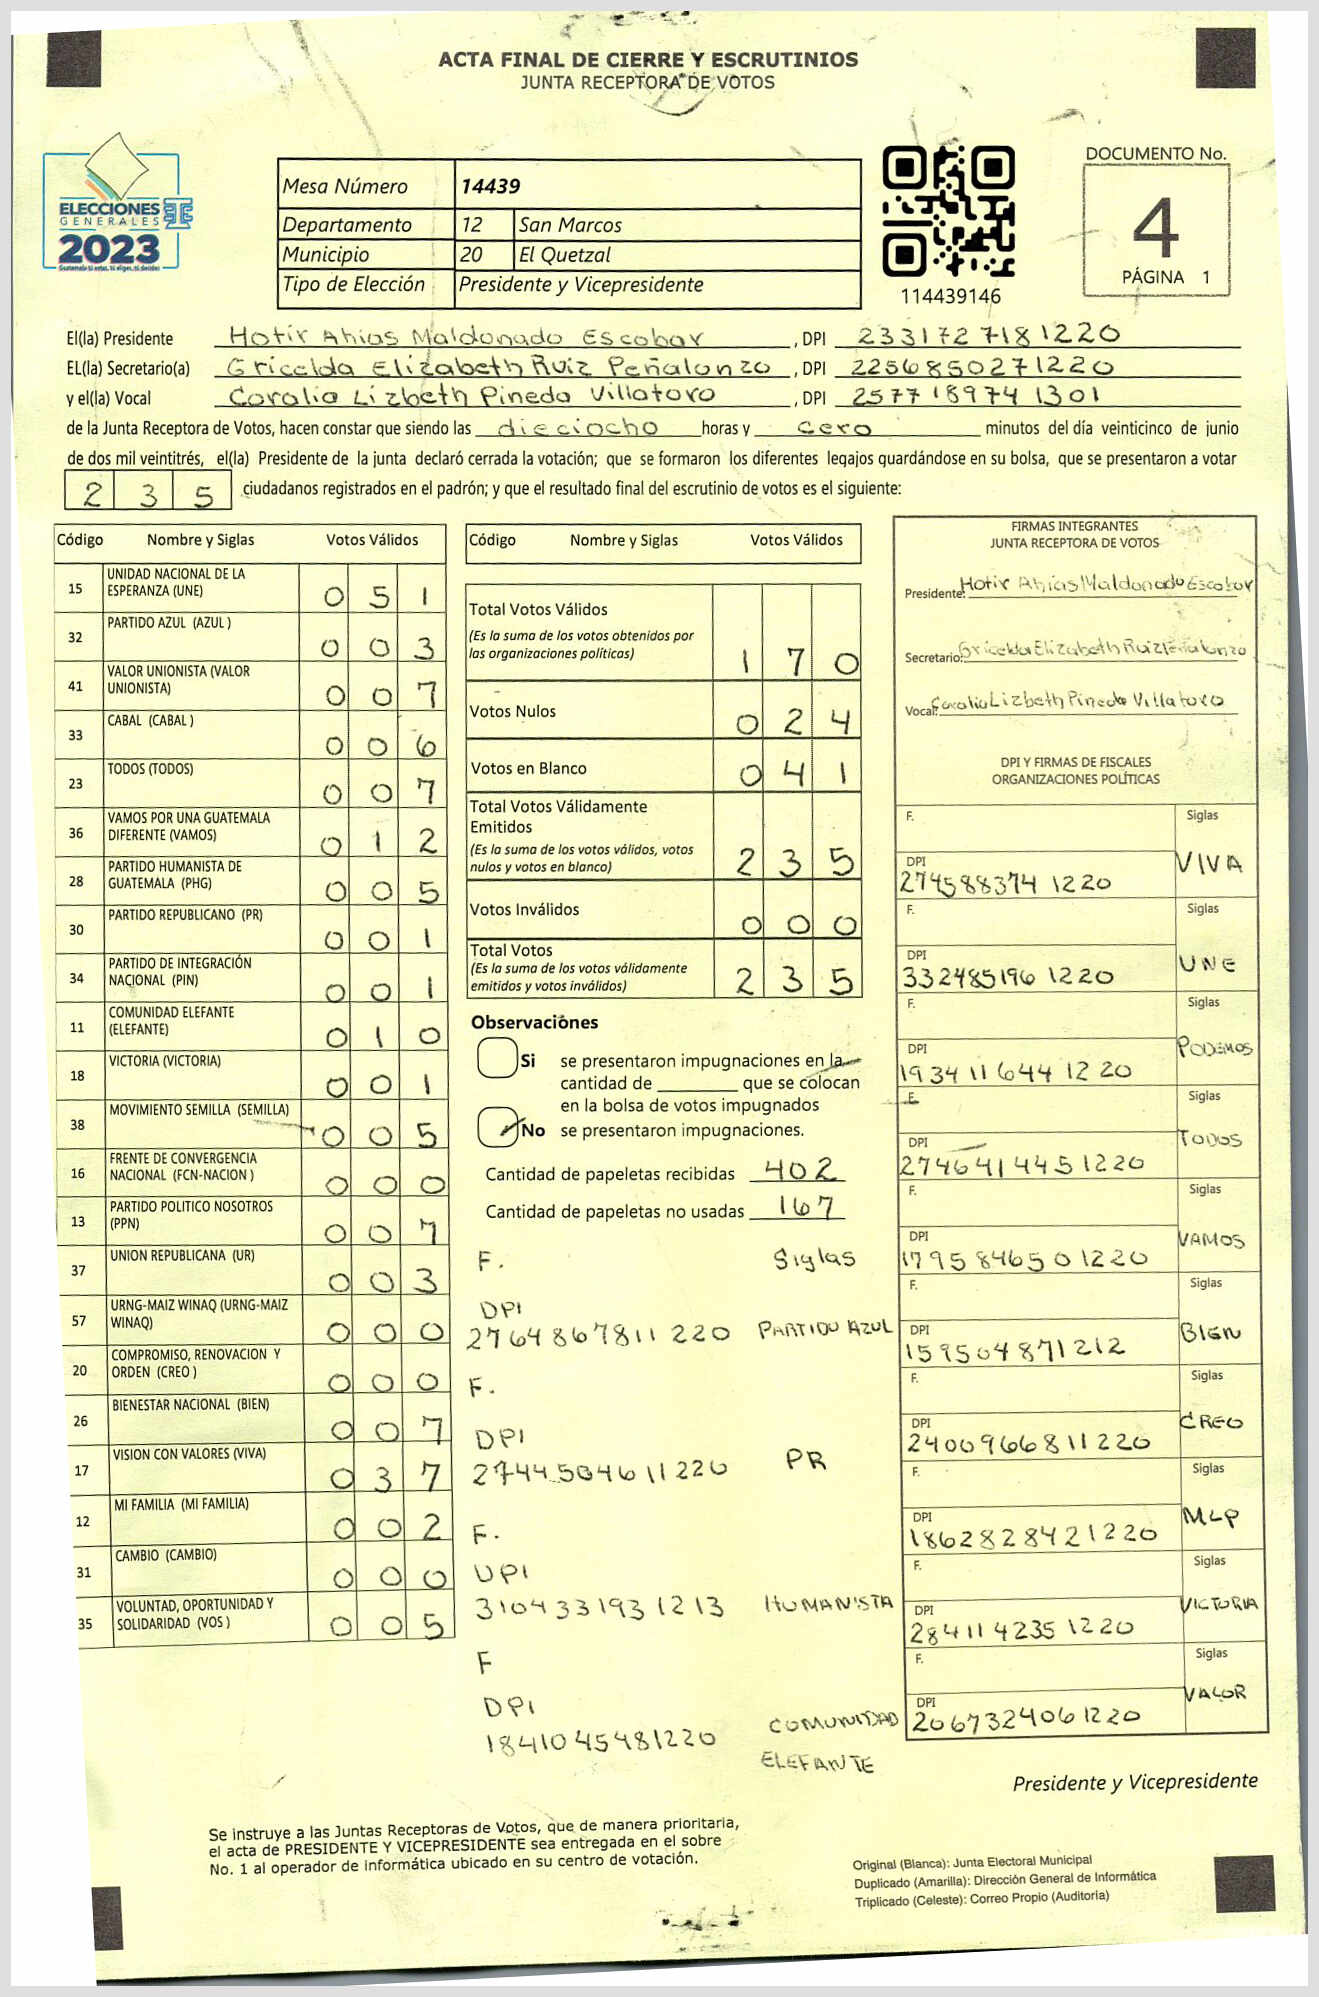 ACTA FINAL DE CIERRE Y ESCRUTINIOS
JUNTA RECEPTORA DE VOTOS
ELECCIONES
GENERALES
2023
Guatemala tú votas, tú eliges, tú decides
TSE
Mesa Número 14439
Departamento 12 San Marcos
Municipio 20 El Quetzal
Tipo de Elección Presidente y Vicepresidente
114439146
DOCUMENTO No.
4
PÁGINA 1
El(la) Presidente Hotir Ahias Maldonado Escobar, DPI 2331727181220
EL(la) Secretario(a) Gricelda Elizabeth Ruiz Peñalonzo, DPI 2256850271220
y el(la) Vocal Coralia Lizbeth Pineda Villatoro, DPI 2577189741301
de la Junta Receptora de Votos, hacen constar que siendo las dieciocho horas y cero minutos del día veinticinco de junio
de dos mil veintitrés, el(la) Presidente de la junta declaró cerrada la votación; que se formaron los diferentes legajos guardándose en su bolsa, que se presentaron a votar
2 3 5 ciudadanos registrados en el padrón; y que el resultado final del escrutinio de votos es el siguiente:
Código Nombre y Siglas Votos Válidos
15 UNIDAD NACIONAL DE LA
ESPERANZA (UNE) 0 5 1
32 PARTIDO AZUL (AZUL ) 0 0 3
41 VALOR UNIONISTA (VALOR
UNIONISTA) 0 0 7
33 CABAL (CABAL ) 0 0 6
23 TODOS (TODOS) 0 0 7
36 VAMOS POR UNA GUATEMALA
DIFERENTE (VAMOS) 0 1 2
28 PARTIDO HUMANISTA DE
GUATEMALA (PHG) 0 0 5
30 PARTIDO REPUBLICANO (PR) 0 0 1
34 PARTIDO DE INTEGRACIÓN
NACIONAL (PIN) 0 0 1
11 COMUNIDAD ELEFANTE
(ELEFANTE) 0 1 0
18 VICTORIA (VICTORIA) 0 0 1
38 MOVIMIENTO SEMILLA (SEMILLA) 0 0 5
16 FRENTE DE CONVERGENCIA
NACIONAL (FCN-NACION ) 0 0 0
13 PARTIDO POLITICO NOSOTROS
(PPN) 0 0 7
37 UNION REPUBLICANA (UR) 0 0 3
57 URNG-MAIZ WINAQ (URNG-MAIZ
WINAQ) 0 0 0
20 COMPROMISO, RENOVACION Y
ORDEN (CREO ) 0 0 0
26 BIENESTAR NACIONAL (BIEN) 0 0 7
17 VISION CON VALORES (VIVA) 0 3 7
12 MI FAMILIA (MI FAMILIA) 0 0 2
31 CAMBIO (CAMBIO) 0 0 0
35 VOLUNTAD, OPORTUNIDAD Y
SOLIDARIDAD (VOS ) 0 0 5
Código Nombre y Siglas Votos Válidos
Total Votos Válidos
(Es la suma de los votos obtenidos por
las organizaciones políticas) 1 7 0
Votos Nulos 0 2 4
Votos en Blanco 0 4 1
Total Votos Válidamente
Emitidos
(Es la suma de los votos válidos, votos
nulos y votos en blanco) 2 3 5
Votos Inválidos 0 0 0
Total Votos
(Es la suma de los votos válidamente
emitidos y votos inválidos) 2 3 5
Observaciones
Si se presentaron impugnaciones en la
cantidad de ________ que se colocan
en la bolsa de votos impugnados
No se presentaron impugnaciones.
Cantidad de papeletas recibidas 402
Cantidad de papeletas no usadas 167
F. Siglas
DPI
2764867811220 PARTIDO AZUL
F.
DPI
2744504611220 PR
F.
DPI
3104331931213 HUMANISTA
F
DPI
1841045481220 COMUNIDAD
ELEFANTE
FIRMAS INTEGRANTES
JUNTA RECEPTORA DE VOTOS
Presidente: Hotir Ahias Maldonado Escobar
Secretario: Gricelda Elizabeth Ruiz Peñalonzo
Vocal: Coralia Lizbeth Pineda Villatoro
DPI Y FIRMAS DE FISCALES
ORGANIZACIONES POLÍTICAS
F. Siglas
DPI VIVA
2745883741220
F. Siglas
DPI UNE
3324851961220
F. Siglas
DPI PODEMOS
1934116441220
F. Siglas
DPI TODOS
2746414451220
F. Siglas
DPI VAMOS
1795846501220
F. Siglas
DPI BIEN
159504871212
F. Siglas
DPI CREO
2400966811220
F. Siglas
DPI MLP
1862828421220
F. Siglas
DPI VICTORIA
2841142351220
F. Siglas
DPI VALOR
2067324061220
Presidente y Vicepresidente
Se instruye a las Juntas Receptoras de Votos, que de manera prioritaria,
el acta de PRESIDENTE Y VICEPRESIDENTE sea entregada en el sobre
No. 1 al operador de informática ubicado en su centro de votación.
Original (Blanca): Junta Electoral Municipal
Duplicado (Amarilla): Dirección General de Informática
Triplicado (Celeste): Correo Propio (Auditoría)